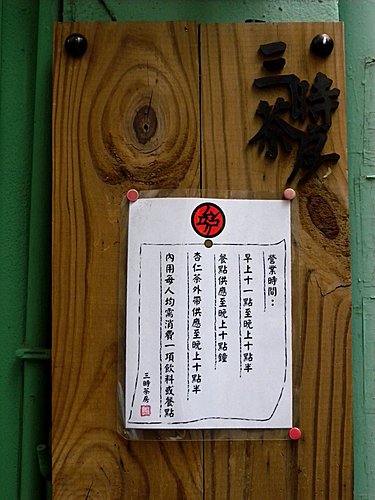 三時茶房
營業時間：
早上十一點至晚上十點半
餐點供應至晚上十點鐘
杏仁茶外帶供應至晚上十點半
內用每人均需消費一項飲料或餐點
三時茶房